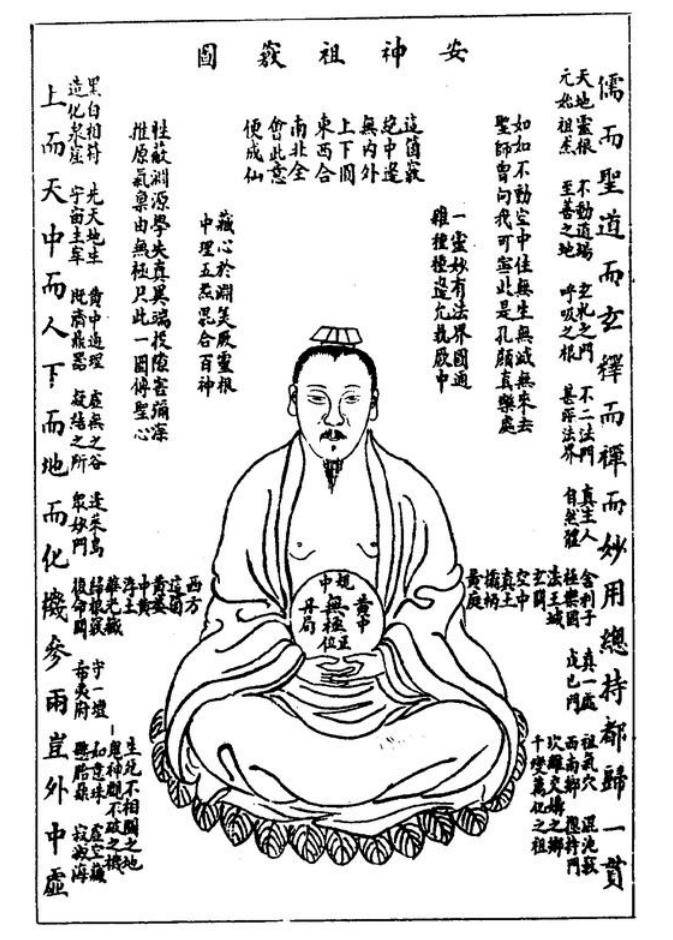 安神祖竅圖
儒而聖道而玄釋而禪而妙用總持都歸一貫
天地靈根
元始祖炁
不動道場
至善之地
玄牝之門
呼吸之根
不二法門
甚深法界
真主人
自然體
舍利子
極樂國
法王城
玄關
空中
真土
欛柄
黃庭
真一處
戊己門
祖氣穴 混沌竅
西南鄉 總持門
坎離交媾之鄉
千變萬化之祖
如如不動空中住無生無滅無來去
聖師曾問我可寧此是孔顏真樂處
一靈妙有法界圓通
離種種邊允執厥中
這箇竅
絕中邊
無內外
上下圓
東西合
南北全
會此意
便成仙
藏心於淵美厥靈根
中理五炁混合百神
性竅淵源學失真異端投隙害彌深
推原氣稟由無極只此一圖傳聖心
規中
黃中
無極
正位
丹扃
黑白相符
造化泉窟
先天地生
宇宙主宰
黃中通理
既濟鼎器
虛無之谷
凝結之所
蓬萊島
眾妙門
西方
這箇
黃婆
中黃
淨土
華光藏
歸根竅
復命關
守一壇
希夷府
生死不相關之地
鬼神覷不破之機
如意珠 虛空藏
懸胎鼎 寂滅海
上而天中而人下而地而化機參兩豈外中虛